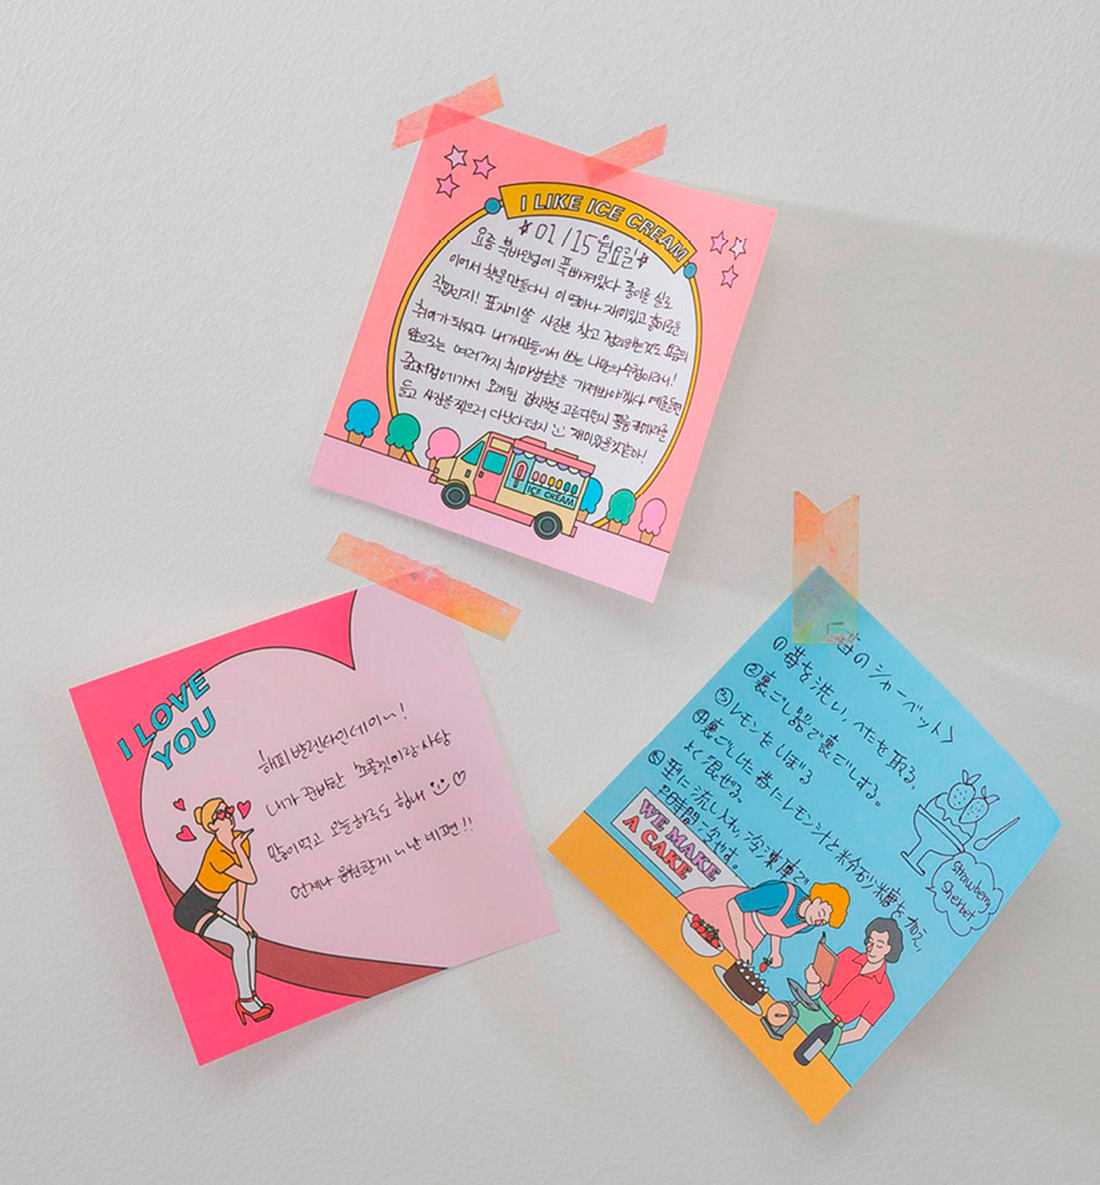 I LIKE ICE CREAM
01/15 월요일
요즘 북바인딩에 푹 빠져있다 종이를 실로
이어서 책을 만들다니 이 얼마나 재미있고 흥미로운
작업인지! 표지에 쓸 사진을 찾고 정리하는것도 요즘의
취미가 되었다 내가 만들어서 쓰는 나만의 수첩이라니!
앞으로는 여러가지 취미생활을 가져봐야겠다 예를들면
중고서점에 가서 오래된 잡지책을 고른다던지 필름카메라를
들고 사진을 찍으러 다닌다던지 재미있을것같아!
ICE CREAM
I LOVE
YOU
해피 발렌타인데이~!
내가 준비한 초콜릿이랑 사탕
많이 먹고 오늘 하루도 힘내
언제나 응원할게 난 네 편!!
苺のシャーベット〉
①苺を洗い、へたを取る。
②裏ごし器で裏ごしする。
③レモンをしぼる
④裏ごしした苺にレモン汁と粉砂糖を加え、
よく混ぜる。
⑤型に流し入れ、冷凍庫で
時間冷やす。
Strawberry
Sherbet
WE MAKE
A CAKE